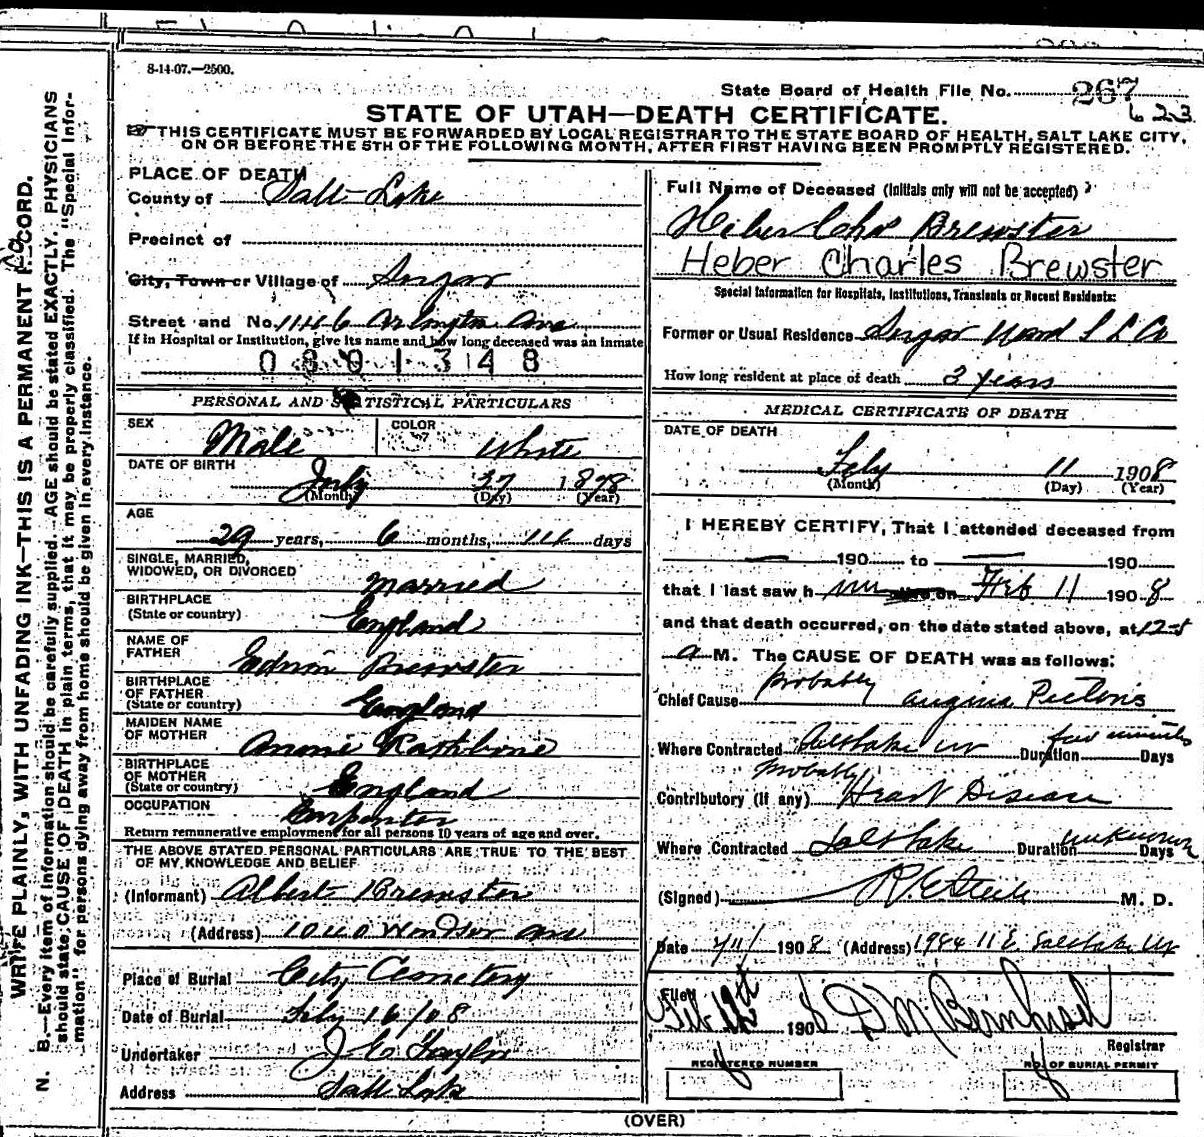 8-14-07.—2500.
State Board of Health File No. 267
623
STATE OF UTAH—DEATH CERTIFICATE.
THIS CERTIFICATE MUST BE FORWARDED BY LOCAL REGISTRAR TO THE STATE BOARD OF HEALTH, SALT LAKE CITY,
ON OR BEFORE THE 5TH OF THE FOLLOWING MONTH, AFTER FIRST HAVING BEEN PROMPTLY REGISTERED.
WRITE PLAINLY, WITH UNFADING INK—THIS IS A PERMANENT RECORD.
N. B.—Every item of information should be carefully supplied. AGE should be stated EXACTLY. PHYSICIANS
should state CAUSE OF DEATH in plain terms, that it may be properly classified. The "Special Infor-
mation" for persons dying away from home should be given in every instance.
PLACE OF DEATH
County of Salt Lake
Precinct of
City, Town or Village of Sugar
Street and No. 1146 Arlington Ave
If in Hospital or Institution, give its name and how long deceased was an inmate
0801348
PERSONAL AND STATISTICAL PARTICULARS
SEX Male COLOR White
DATE OF BIRTH July 27 1878
(Month) (Day) (Year)
AGE
29 years, 6 months, 14 days
SINGLE, MARRIED,
WIDOWED, OR DIVORCED Married
BIRTHPLACE
(State or country) England
NAME OF
FATHER Edwin Brewster
BIRTHPLACE
OF FATHER
(State or country) England
MAIDEN NAME
OF MOTHER Annie Rathbone
BIRTHPLACE
OF MOTHER
(State or country) England
OCCUPATION Carpenter
Return remunerative employment for all persons 10 years of age and over.
THE ABOVE STATED PERSONAL PARTICULARS ARE TRUE TO THE BEST
OF MY KNOWLEDGE AND BELIEF
(Informant) Albert Brewster
(Address) 1040 Windsor Ave
Place of Burial City Cemetery
Date of Burial Feby 16/08
Undertaker
Address Salt Lake
Full Name of Deceased (Initials only will not be accepted)
Heber Chas Brewster
Heber Charles Brewster
Special Information for Hospitals, Institutions, Transients or Recent Residents:
Former or Usual Residence Sugar Ward S L Co
How long resident at place of death 2 years
MEDICAL CERTIFICATE OF DEATH
DATE OF DEATH
Feby 11 1908
(Month) (Day) (Year)
I HEREBY CERTIFY, That I attended deceased from
— 190 to — 190
that I last saw him alive on Feb 11 1908
and that death occurred, on the date stated above, at 12-5
a M. The CAUSE OF DEATH was as follows:
Chief Cause probably angina Pectoris
Where Contracted Salt Lake Ut Duration few minutes Days
Contributory (if any) Probably Heart Disease
Where Contracted Salt Lake Duration unknown Days
(Signed) M. D.
Date 2/11/ 1908 (Address) 1984 11 E Salt Lake Ut
Filed Feb 12th 1908
Registrar
REGISTERED NUMBER
NO. OF BURIAL PERMIT
(OVER)